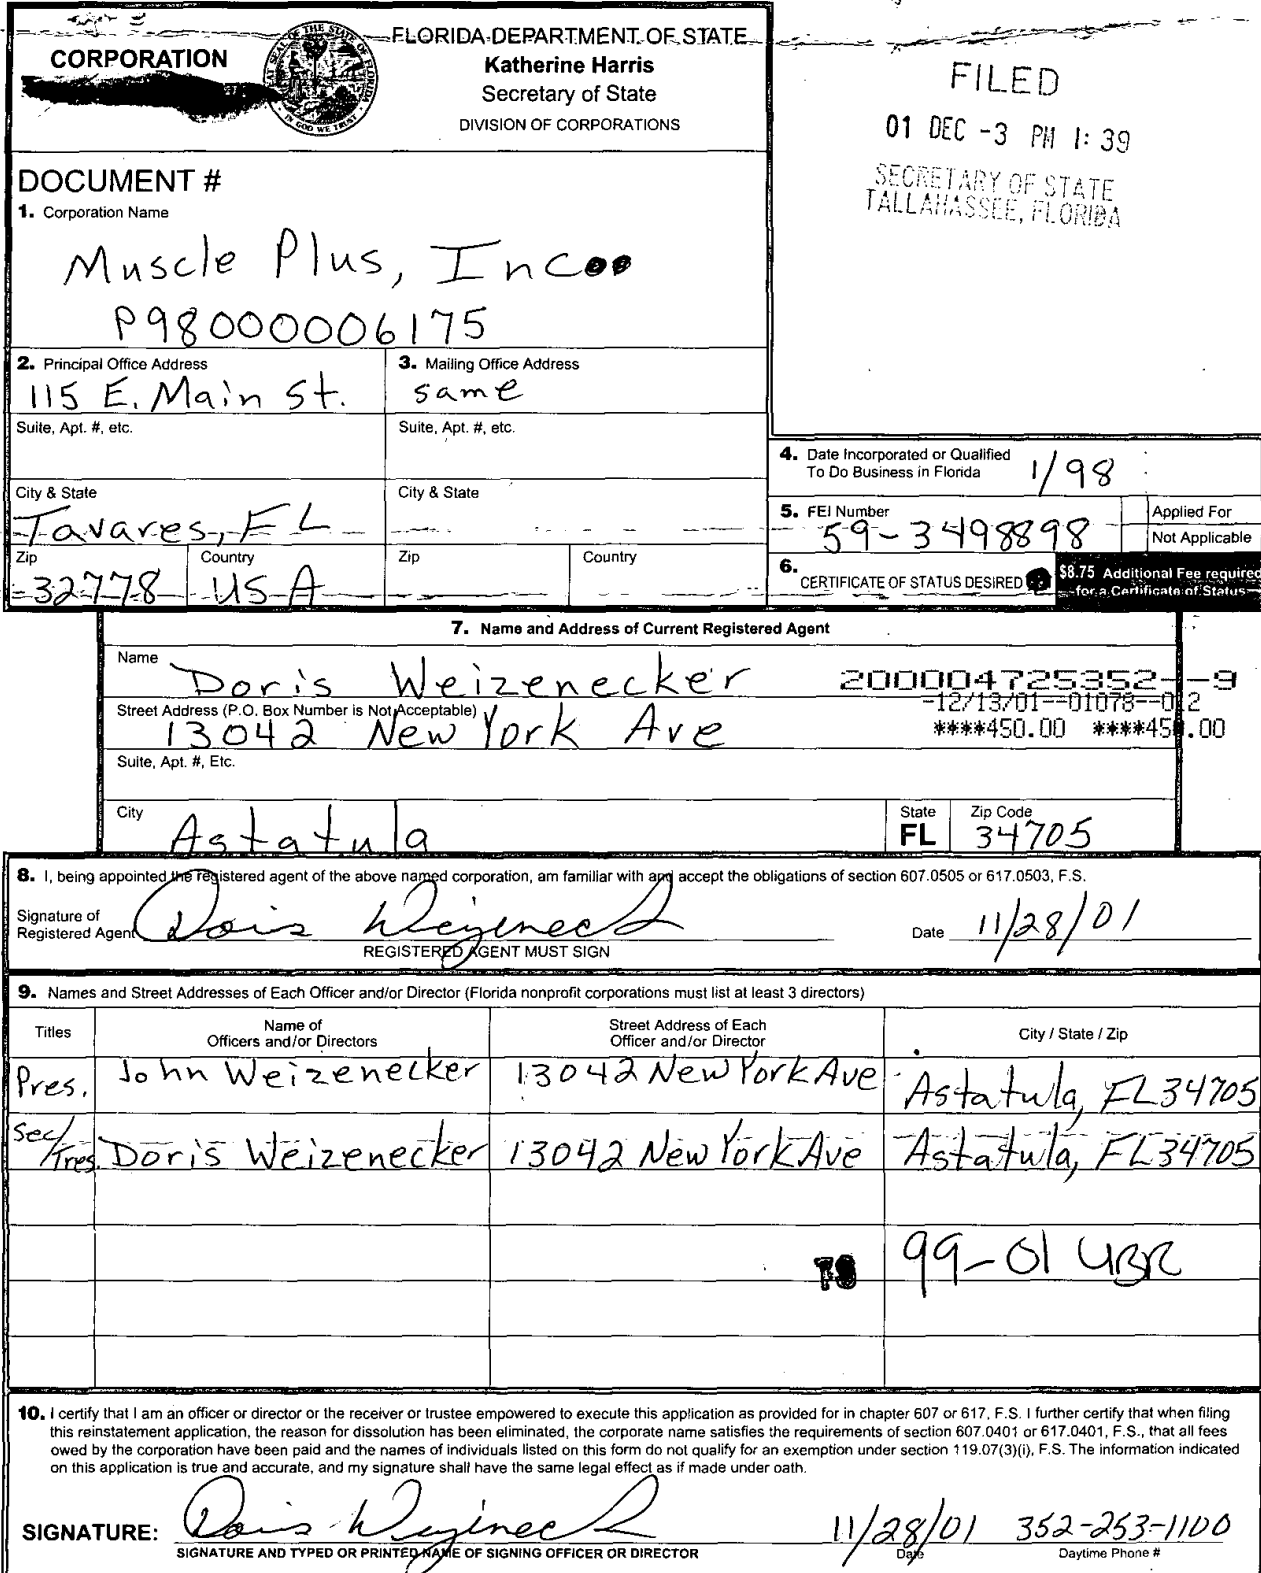 CORPORATION
FLORIDA DEPARTMENT OF STATE
Katherine Harris
Secretary of State
DIVISION OF CORPORATIONS
FILED
01 DEC -3 PM 1:39
SECRETARY OF STATE
TALLAHASSEE, FLORIDA
DOCUMENT #
1. Corporation Name
Muscle Plus, Inc
P98000006175
2. Principal Office Address
115 E. Main St.
3. Mailing Office Address
same
Suite, Apt. #, etc.
Suite, Apt. #, etc.
City & State
Tavares, FL
City & State
Zip
32778
Country
USA
Zip
Country
4. Date Incorporated or Qualified
To Do Business in Florida
1/98
5. FEI Number
59-3498898
Applied For
Not Applicable
6. CERTIFICATE OF STATUS DESIRED
$8.75 Additional Fee required
for a Certificate of Status
7. Name and Address of Current Registered Agent
Name
Doris Weizenecker
200004725352--9
-12/13/01--01078--012
****450.00 ****450.00
Street Address (P.O. Box Number is Not Acceptable)
13042 New York Ave
Suite, Apt. #, Etc.
City
Astatula
State
FL
Zip Code
34705
8. I, being appointed the registered agent of the above named corporation, am familiar with and accept the obligations of section 607.0505 or 617.0503, F.S.
Signature of
Registered Agent
Doris Weizenecker
REGISTERED AGENT MUST SIGN
Date 11/28/01
9. Names and Street Addresses of Each Officer and/or Director (Florida nonprofit corporations must list at least 3 directors)
Titles
Name of
Officers and/or Directors
Street Address of Each
Officer and/or Director
City / State / Zip
Pres. John Weizenecker 13042 New York Ave Astatula, FL 34705
Sec/Tres. Doris Weizenecker 13042 New York Ave Astatula, FL 34705
99-01 UBR
10. I certify that I am an officer or director or the receiver or trustee empowered to execute this application as provided for in chapter 607 or 617, F.S. I further certify that when filing
this reinstatement application, the reason for dissolution has been eliminated, the corporate name satisfies the requirements of section 607.0401 or 617.0401, F.S., that all fees
owed by the corporation have been paid and the names of individuals listed on this form do not qualify for an exemption under section 119.07(3)(i), F.S. The information indicated
on this application is true and accurate, and my signature shall have the same legal effect as if made under oath.
SIGNATURE: Doris Weizenecker 11/28/01 352-253-1100
SIGNATURE AND TYPED OR PRINTED NAME OF SIGNING OFFICER OR DIRECTOR
Date
Daytime Phone #